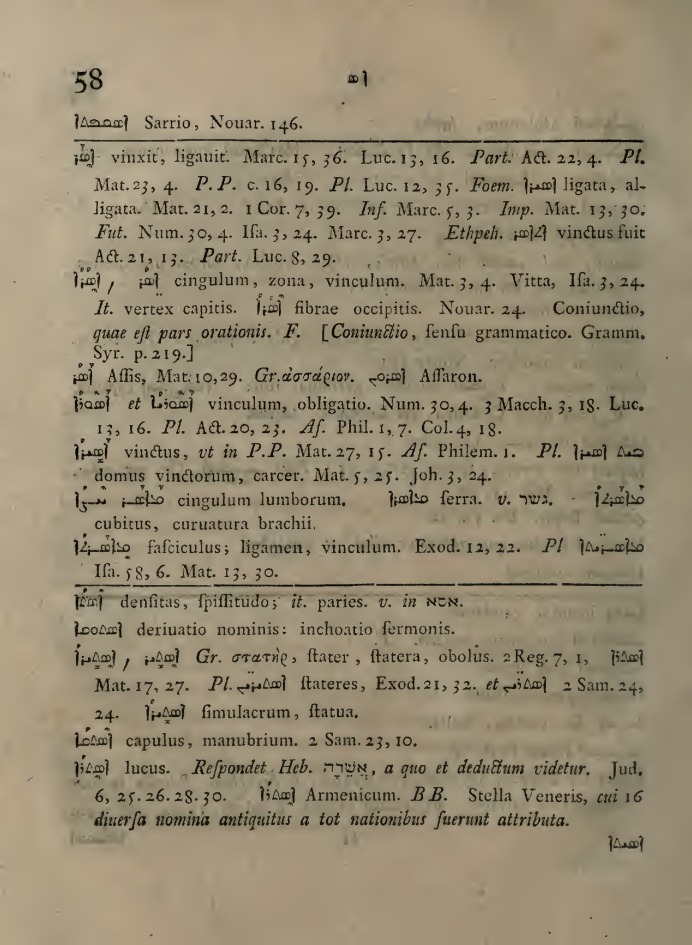 58 ܐܣ
Sarrio, Nouar. 146.
ܐܣܪ vinxit, ligauit. Marc. 15, 36. Luc. 13, 16. Part. Act. 22, 4. Pl.
Mat. 23, 4. P. P. c. 16, 19. Pl. Luc. 12, 35. Foem. ܐܣܝܪܐ ligata, al-
ligata. Mat. 21, 2. 1 Cor. 7, 39. Inf. Marc. 5, 3. Imp. Mat. 13, 30.
Fut. Num. 30, 4. Isa. 3, 24. Marc. 3, 27. Ethpeh. ܐܬܐܣܪ vinctus fuit
Act. 21, 13. Part. Luc. 8, 29.
ܐܣܪܐ, ܐܣܪ cingulum, zona, vinculum. Mat. 3, 4. Vitta, Isa. 3, 24.
It. vertex capitis. ܐܣܪܐ fibrae occipitis. Nouar. 24. Coniunctio,
quae est pars orationis. F. [Coniunctio, sensu grammatico. Gramm.
Syr. p. 219.]
ܐܣܪ Assis, Mat. 10, 29. Gr. ἀσσάριον. ܐܣܪܘܢ Assaron.
ܐܣܘܪܐ et ܐܣܘܪܝܐ vinculum, obligatio. Num. 30, 4. 3 Macch. 3, 18. Luc.
13, 16. Pl. Act. 20, 23. Af. Phil. 1, 7. Col. 4, 18.
ܐܣܝܪܐ vinctus, vt in P. P. Mat. 27, 15. Af. Philem. 1. Pl. ܒܝܬ ܐܣܝܪܐ
domus vinctorum, carcer. Mat. 5, 25. Joh. 3, 24.
cingulum lumborum. ܡܐܣܪܐ serra. v. נשר.
cubitus, curuatura brachii.
ܡܐܣܪܬܐ fasciculus; ligamen, vinculum. Exod. 12, 22. Pl
Isa. 58, 6. Mat. 13, 30.
densitas, spissitudo; it. paries. v. in אסא.
deriuatio nominis: inchoatio sermonis.
ܐܣܬܝܪܐ, ܐܣܬܝܪ Gr. στατὴρ, stater, statera, obolus. 2 Reg. 7, 1, ܐܣܬܪܐ
Mat. 17, 27. Pl. ܐܣܬܝܪܝܢ stateres, Exod. 21, 32. et ܐܣܬܪܝܢ 2 Sam. 24,
24. ܐܣܬܝܪܐ simulacrum, statua.
capulus, manubrium. 2 Sam. 23, 10.
ܐܣܬܪܐ lucus. Respondet Heb. אֲשֵׁרָה, a quo et deductum videtur. Jud.
6, 25. 26. 28. 30. ܐܣܬܪܐ Armenicum. BB. Stella Veneris, cui 16
diuersa nomina antiquitus a tot nationibus fuerunt attributa.